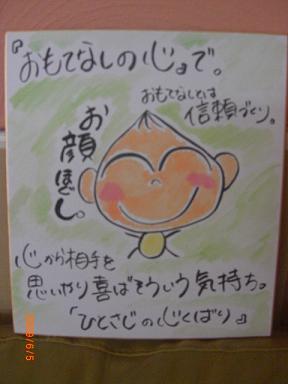 『おもてなしの心』で。
おもてなしとは
信頼づくり。
お顔ほし。
心から相手を
思いやり喜ばそういう気持ち。
「ひとさじの心くばり』
2009/6/5